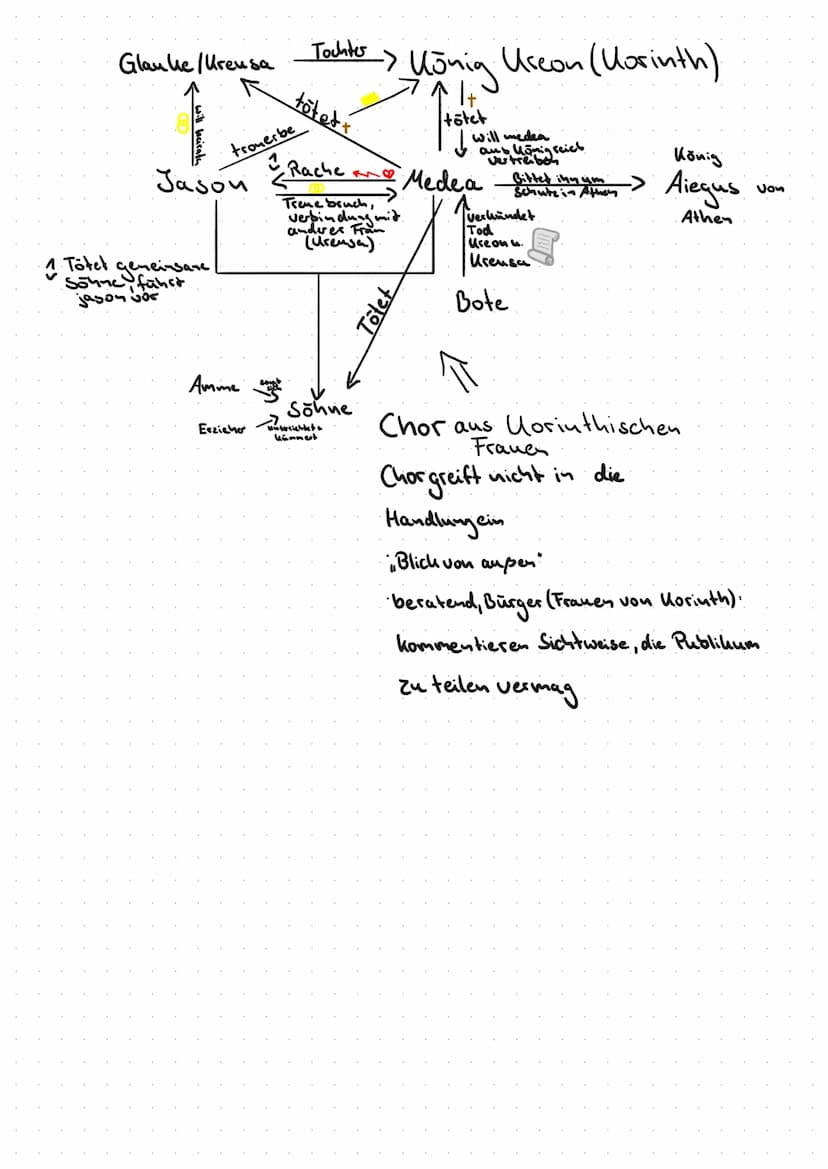 Glauke/Kreusa
Tochter
König Kreon (Korinth)
will heiraten
tötet
tronerbe
tötet
will medea
aus Königreich
vertreiben
Jason
Rache
Medea
Bittet ihn um
Schutz in Athen
König
Aiegus von
Athen
Treuebruch,
verbindung mit
anderer Frau
(Kreusa)
verkündet
Tod
Kreon u.
Kreusa
Bote
Tötet gemeinsare
Söhne, führt
jason vor
Tötet
Amme
Söhne
Erzieher
unterrichtet +
kümmert
Chor aus Korinthischen
Frauen
Chor greift nicht in die
Handlung ein
„Blick von außen"
beratend, Bürger (Frauen von Korinth)
kommentieren Sichtweise, die Publikum
zu teilen vermag